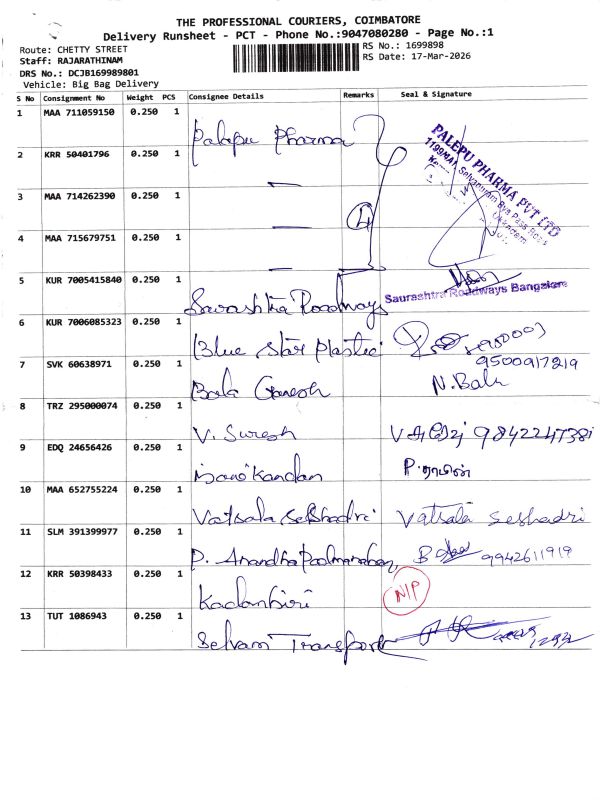 THE PROFESSIONAL COURIERS, COIMBATORE
Delivery Runsheet - PCT - Phone No.:9047080280 - Page No.:1
Route: CHETTY STREET
RS No.: 1699898
Staff: RAJARATHINAM
RS Date: 17-Mar-2026
DRS No.: DCJB169989801
Vehicle: Big Bag Delivery
S No Consignment No Weight PCS Consignee Details Remarks Seal & Signature
1 MAA 711059150 0.250 1 Palepu Pharma
PALEPU PHARMA PVT LTD
2 KRR 50401796 0.250 1
3 MAA 714262390 0.250 1
4
4 MAA 715679751 0.250 1
5 KUR 7005415840 0.250 1 Saurashtra Roadways
Saurashtra Roadways Bangalore
6 KUR 7006085323 0.250 1 Blue Star Plastic
9500917219
7 SVK 60638971 0.250 1 Bala Ganesh N.Bala
8 TRZ 295000074 0.250 1 V. Suresh
9 EDQ 24656426 0.250 1
10 MAA 652755224 0.250 1 Vatsala Seshadri Vatsala Seshadri
11 SLM 391399977 0.250 1 P. Anandha Padmanaban 9942611919
12 KRR 50398433 0.250 1 N/P
13 TUT 1086943 0.250 1 Selvam Transport